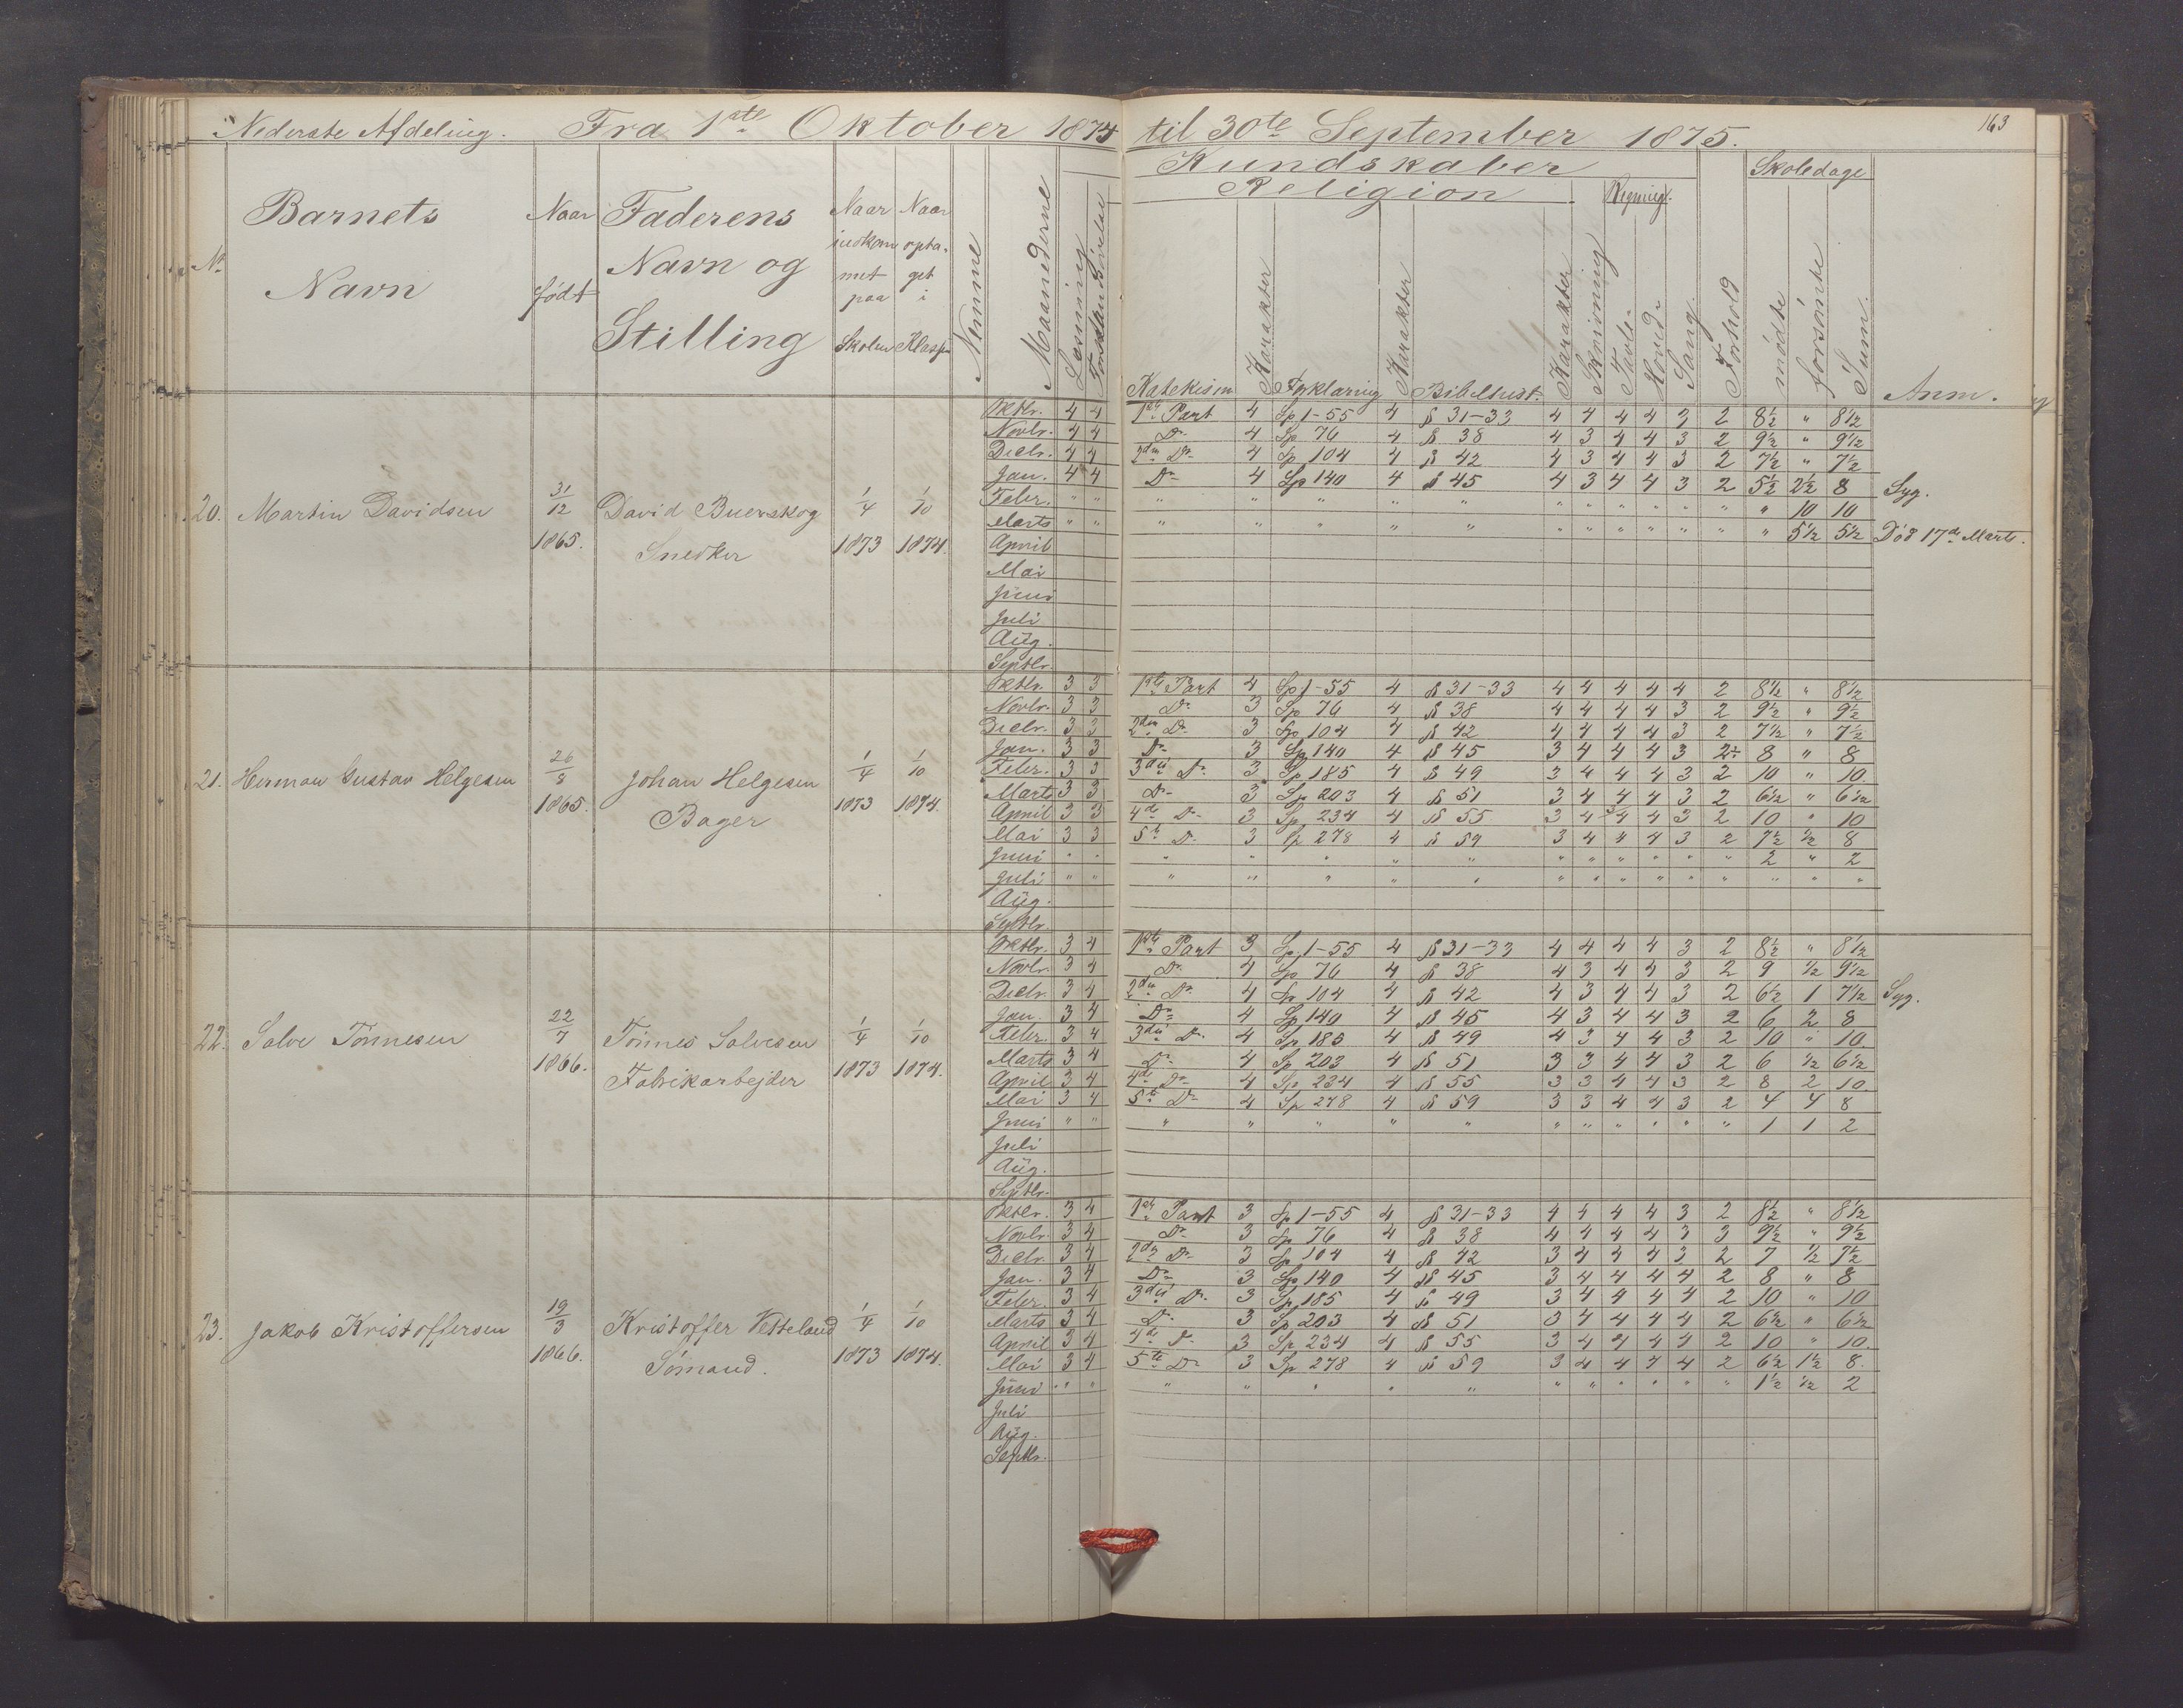 Nederste Afdeling. Fra 1ste Oktober 1874 til 30te September 1875. 163
Kundskaber
Religion Regning. Skoledage
No Barnets Navn Naar født Faderens Navn og Stilling Naar indkommet paa Skolen Naar optaget i Klassen Nemme Maanederne Læsning Forstandsøvelse Katekism Karakter Forklaring Karakter Bibelhist. Karakter Skrivning Tavle- Hoved- Sang Forhold mødte forsømte Sum. Anm.
20. Martin Davidsen 31/12 1865. David Buerskog Snedker 1/4 1873 1/10 1874.
Oktbr. 4 4 1ste Part 4 Sp 1-55 4 § 31-33 4 4 4 4 3 2 8½ " 8½
Novbr. 4 4 Do 4 Sp 76 4 § 38 4 3 4 4 3 2 9½ " 9½
Decbr. 4 4 2den Do 4 Sp 104 4 § 42 4 3 4 4 3 2 7½ " 7½
Jan. 4 4 Do 4 Sp 140 4 § 45 4 3 4 4 3 2 5½ 2½ 8 Syg.
Febr. " " " " " " " " " " " " " " 10 10
Marts " " " " " " " " " " " " " " 5½ 5½ Død 17de Marts.
April
Mai
Juni
Juli
Aug.
Septbr.
21. Herman Gustav Helgesen 26/8 1865. Johan Helgesen Bager 1/4 1873 1/10 1874.
Oktbr. 3 3 1ste Part 4 Sp 1-55 4 § 31-33 4 4 4 4 4 2 8½ " 8½
Novbr. 3 3 Do 3 Sp 76 4 § 38 4 4 4 4 3 2 9½ " 9½
Decbr. 3 3 2den Do 3 Sp 104 4 § 42 4 4 4 4 3 2 7½ " 7½
Jan. 3 3 Do 3 Sp 140 4 § 45 3 4 4 4 3 2÷ 8 " 8
Febr. 3 3 3die Do 3 Sp 185 4 § 49 3 4 4 4 3 2 10 " 10.
Marts 3 3 Do 3 Sp 203 4 § 51 3 4 4 4 3 2 6½ " 6½
April 3 3 4de Do 3 Sp 234 4 § 55 3 4 4 4 3 2 10 " 10
Mai 3 3 5te Do 3 Sp 278 4 § 59 3 4 4 4 3 2 7½ ½ 8
Juni " " " " " " " " " " " " " 2 " 2
Juli " " " " " " " " " " " " " " " "
Aug.
Septbr.
22. Salve Tønnesen 22/7 1866. Tønnes Salvesen Fabrikarbejder 1/4 1873 1/10 1874.
Oktbr. 3 4 1ste Part 3 Sp 1-55 4 § 31-33 4 4 4 4 3 2 8½ " 8½
Novbr. 3 4 Do 4 Sp 76 4 § 38 4 3 4 4 3 2 9 ½ 9½
Decbr. 3 4 2den Do 4 Sp 104 4 § 42 4 3 4 4 3 2 6½ 1 7½ Syg.
Jan. 3 4 Do 4 Sp 140 4 § 45 4 3 4 4 3 2 6 2 8
Febr. 3 4 3die Do 4 Sp 185 4 § 49 4 3 4 4 3 2 10 " 10.
Marts 3 4 Do 4 Sp 203 4 § 51 3 3 4 4 3 2 6 ½ 6½
April 3 4 4de Do 4 Sp 234 4 § 55 3 3 4 4 3 2 8 2 10.
Mai 3 4 5te Do 4 Sp 278 4 § 59 3 3 4 4 3 2 4 4 8
Juni " " " " " " " " " " " " " 1 1 2
Juli
Aug.
Septbr.
23. Jakob Kristoffersen 19/3 1866. Kristoffer Vetteland Sømand. 1/4 1873 1/10 1874.
Oktbr. 3 4 1ste Part 3 Sp 1-55 4 § 31-33 4 4 4 4 3 2 8½ " 8½
Novbr. 3 4 Do 3 Sp 76 4 § 38 4 4 4 4 3 3 9½ " 9½
Decbr. 3 4 2den Do 3 Sp 104 4 § 42 3 4 4 4 3 2 7 ½ 7½
Jan. 3 4 Do 3 Sp 140 4 § 45 3 4 4 4 4 2 8 " 8
Febr. 3 4 3die Do 3 Sp 185 4 § 49 3 4 4 4 4 2 10 " 10
Marts 3 4 Do 3 Sp 203 4 § 51 3 4 4 4 4 2 6½ " 6½
April 3 4 4de Do 3 Sp 234 4 § 55 3 4 4 4 4 2 10 " 10.
Mai 3 4 5te Do 3 Sp 278 4 § 59 3 4 4 4 4 2 6½ 1½ 8.
Juni " " " " " " " " " " " " " 1½ ½ 2
Juli
Aug.
Septbr.